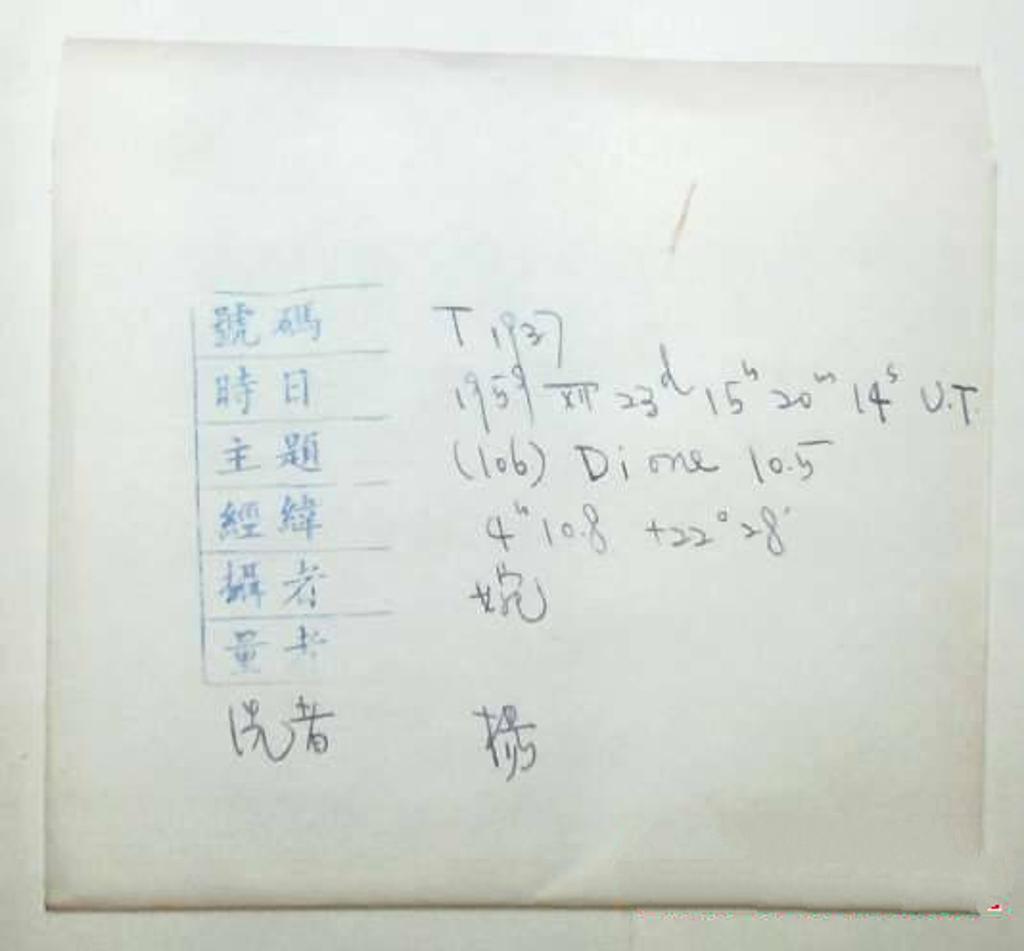 號碼 T 1937
時日 1959 XII 23d 15h 20m 14s U.T.
主題 (106) Dione 10.5
經緯 4h 10.8 +22° 28'
攝者 婉
量者
洗者 楊